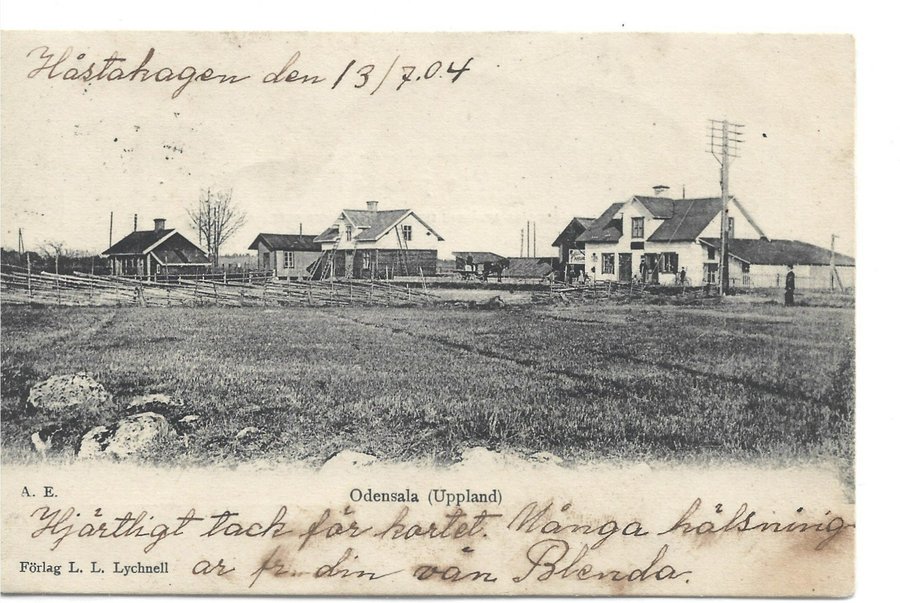 Håstahagen den 13/7.04
A. E.
Odensala (Uppland)
Hjärtligt tack för kortet. Många hälsning
Förlag L. L. Lychnell
ar fr. din vän Blenda.